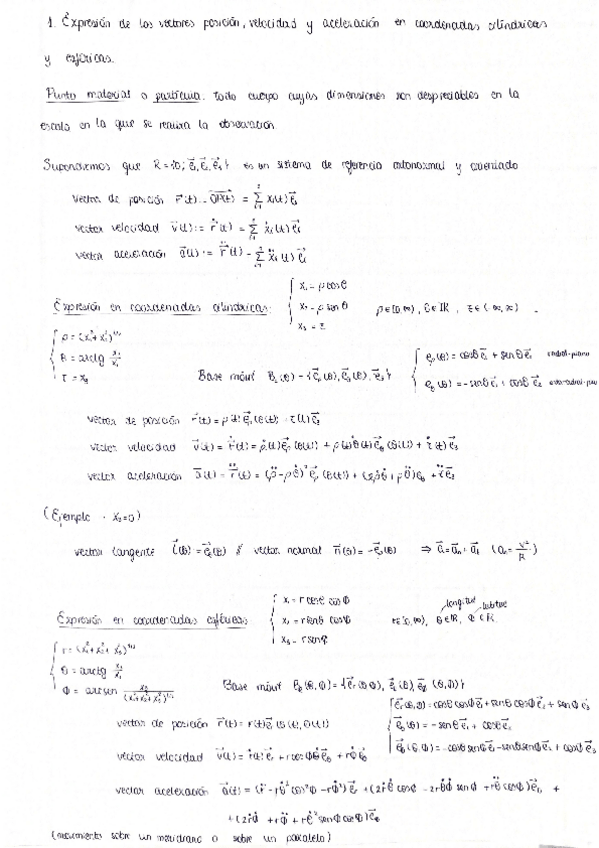 1. Expresión de los vectores posición, velocidad y aceleración en coordenadas cilíndricas
y esféricas.
Punto material o partícula. todo cuerpo cuyas dimensiones son despreciables en la
escala en la que se realiza la observación.
Supondremos que R = {O; e⃗₁, e⃗₂, e⃗₃} es un sistema de referencia ortonormal y orientado
vector de posición r⃗(t) = OP(t) = Σ xᵢ(t) e⃗ᵢ
vector velocidad v⃗(t) := ṙ⃗(t) = Σ ẋᵢ(t) e⃗ᵢ
vector aceleración a⃗(t) := r̈⃗(t) = Σ ẍᵢ(t) e⃗ᵢ
Expresión en coordenadas cilíndricas:
x₁ = ρ cos θ
x₂ = ρ sen θ
x₃ = z
ρ ∈ [0,∞), θ ∈ ℝ, z ∈ (-∞,∞).
ρ = (x₁² + x₂²)^1/2
θ = arctg x₂/x₁
z = x₃
Base móvil B₂(θ) = {e⃗ρ(θ), e⃗θ(θ), e⃗₃}
e⃗ρ(θ) = cosθ e⃗₁ + senθ e⃗₂ radial-plano
e⃗θ(θ) = -senθ e⃗₁ + cosθ e⃗₂
vector de posición r⃗(t) = ρ(t) e⃗ρ(θ(t)) + z(t) e⃗₃
vector velocidad v⃗(t) = ṙ⃗(t) = ρ̇(t) e⃗ρ(θ(t)) + ρ(t) θ̇(t) e⃗θ(θ(t)) + ż(t) e⃗₃
vector aceleración a⃗(t) = r̈⃗(t) = (ρ̈ - ρθ̇)² e⃗ρ(θ(t)) + (2ρ̇θ̇ + ρθ̈) e⃗θ + z̈ e⃗₃
(Ejemplo · x₃=0)
vector tangente t⃗(θ) = e⃗θ(θ) // vector normal n⃗(θ) = -e⃗ρ(θ) ⇒ a⃗ = a⃗ₙ + a⃗ₜ (aₙ = v²/R)
Expresión en coordenadas esféricas:
x₁ = r cosθ cos Φ
x₂ = r senθ cosΦ
x₃ = r senΦ
longitud
latitud
r ∈ [0,∞), θ ∈ ℝ, Φ ∈ ℝ.
r = (x₁² + x₂² + x₃²)^1/2
θ = arctg x₂/x₁
Φ = arcsen x₃/(x₁²+x₂²+x₃²)^1/2
Base móvil B_E(θ,Φ) = {e⃗r(θ,Φ), e⃗θ(θ), e⃗Φ(θ,Φ)}
e⃗r(θ,Φ) = cosθ cosΦ e⃗₁ + senθ cosΦ e⃗₂ + senΦ e⃗₃
e⃗θ(θ) = -senθ e⃗₁ + cosθ e⃗₂
e⃗Φ(θ,Φ) = -cosθ senΦ e⃗₁ - senθ senΦ e⃗₂ + cosΦ e⃗₃
vector de posición r⃗(t) = r(t) e⃗r(θ(t), Φ(t))
vector velocidad v⃗(t) = ṙ(t) e⃗r + r cosΦ θ̇ e⃗θ + r Φ̇ e⃗Φ
vector aceleración a⃗(t) = (r̈ - rθ̇² cos²Φ - rΦ̇²) e⃗r + (2ṙθ̇ cosΦ - 2rθ̇Φ̇ senΦ + rθ̈ cosΦ) e⃗θ +
+ (2ṙΦ̇ + rΦ̈ + rθ̇² senΦ cosΦ) e⃗Φ
(movimiento sobre un meridiano o sobre un paralelo)